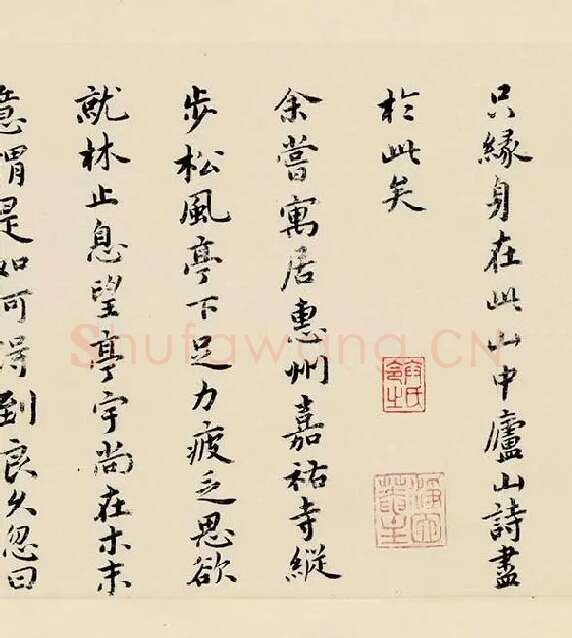 只緣身在此山中廬山詩盡
於此矣
余嘗寓居惠州嘉祐寺縱
步松風亭下足力疲乏思欲
就林止息望亭宇尚在木末
意謂是如何得到良久忽曰
Shufawang.CN